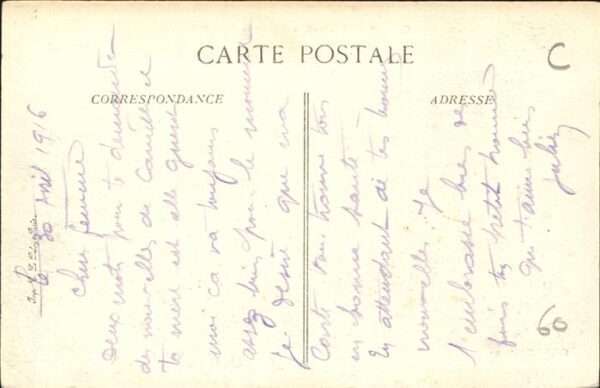 CARTE POSTALE
CORRESPONDANCE
ADRESSE
C
Le 30 Avril 1916
Cher femme
deux mots pour te demander
des nouvelles de Camille et
ta mere est elle guerie
moi ça va toujours
assez bien pour le moment
je desire que ma
Carte vous trouve tous
en bonne santé
En attendant de tes bonnes
nouvelles Je
t'embrasse bien des
fois ton petit homme
qui t'aime bien
60